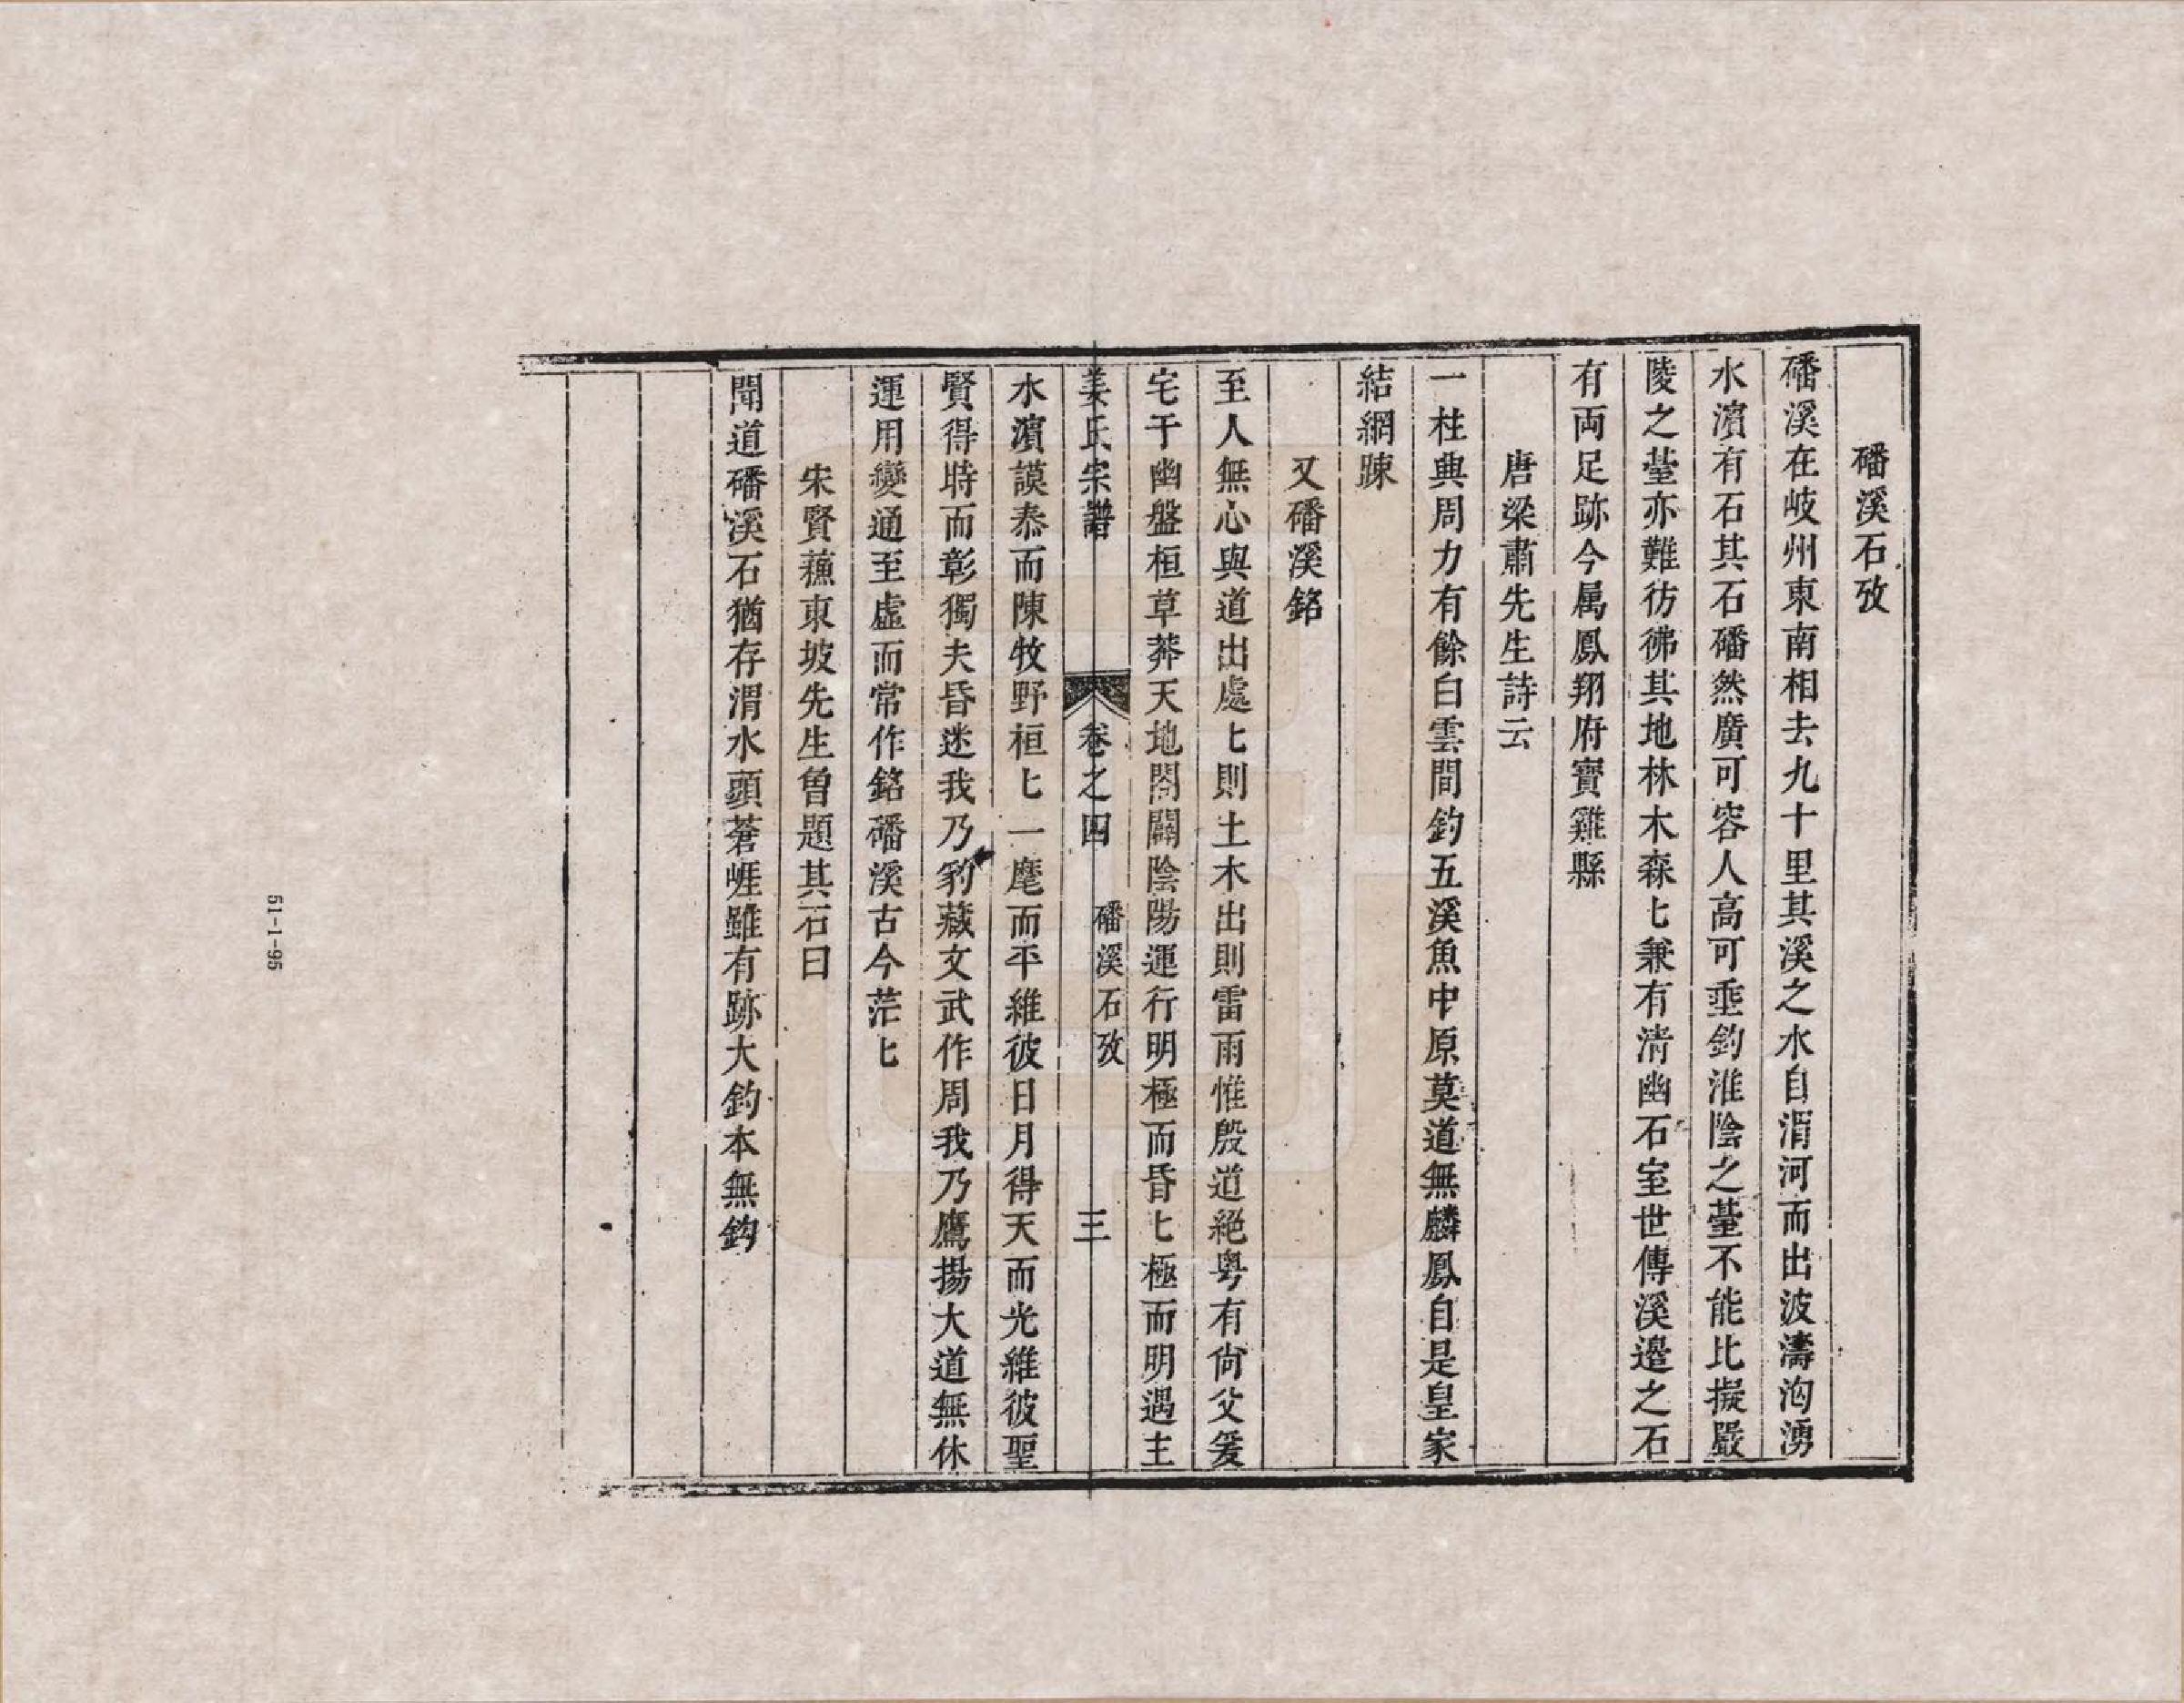 磻溪石攷
磻溪在岐州東南相去九十里其溪之水自渭河而出波濤洶湧
水濵有石其石磻然廣可容人高可垂釣淮陰之䑓不能比擬嚴
陵之䑓亦難彷彿其地林木森匕兼有清幽石室世傳溪邊之石
有両足跡今属鳳翔府寳雞縣
唐梁肅先生詩云
一柱典周力有餘白雲間釣五溪魚中原莫道無麟鳳自是皇家
結網踈
又磻溪銘
至人無心與道出處匕則土木出則雷雨惟殷道絕粤有尙父爰
宅于幽盤桓草莽天地閤闢陰陽運行明極而昏匕極而明遇主
姜氏宗譜 卷之四 磻溪石攷 三
水濵謨泰而陳牧野桓匕一麾而平維彼日月得天而光維彼聖
賢得時而彰獨夫昏迷我乃豹藏文武作周我乃鷹揚大道無休
運用變通至虛而常作銘磻溪古今茫匕
宋賢蘓東坡先生曽題其石曰
聞道磻溪石猶存渭水頭蒼崕雖有跡大釣本無鈎
51-1-95